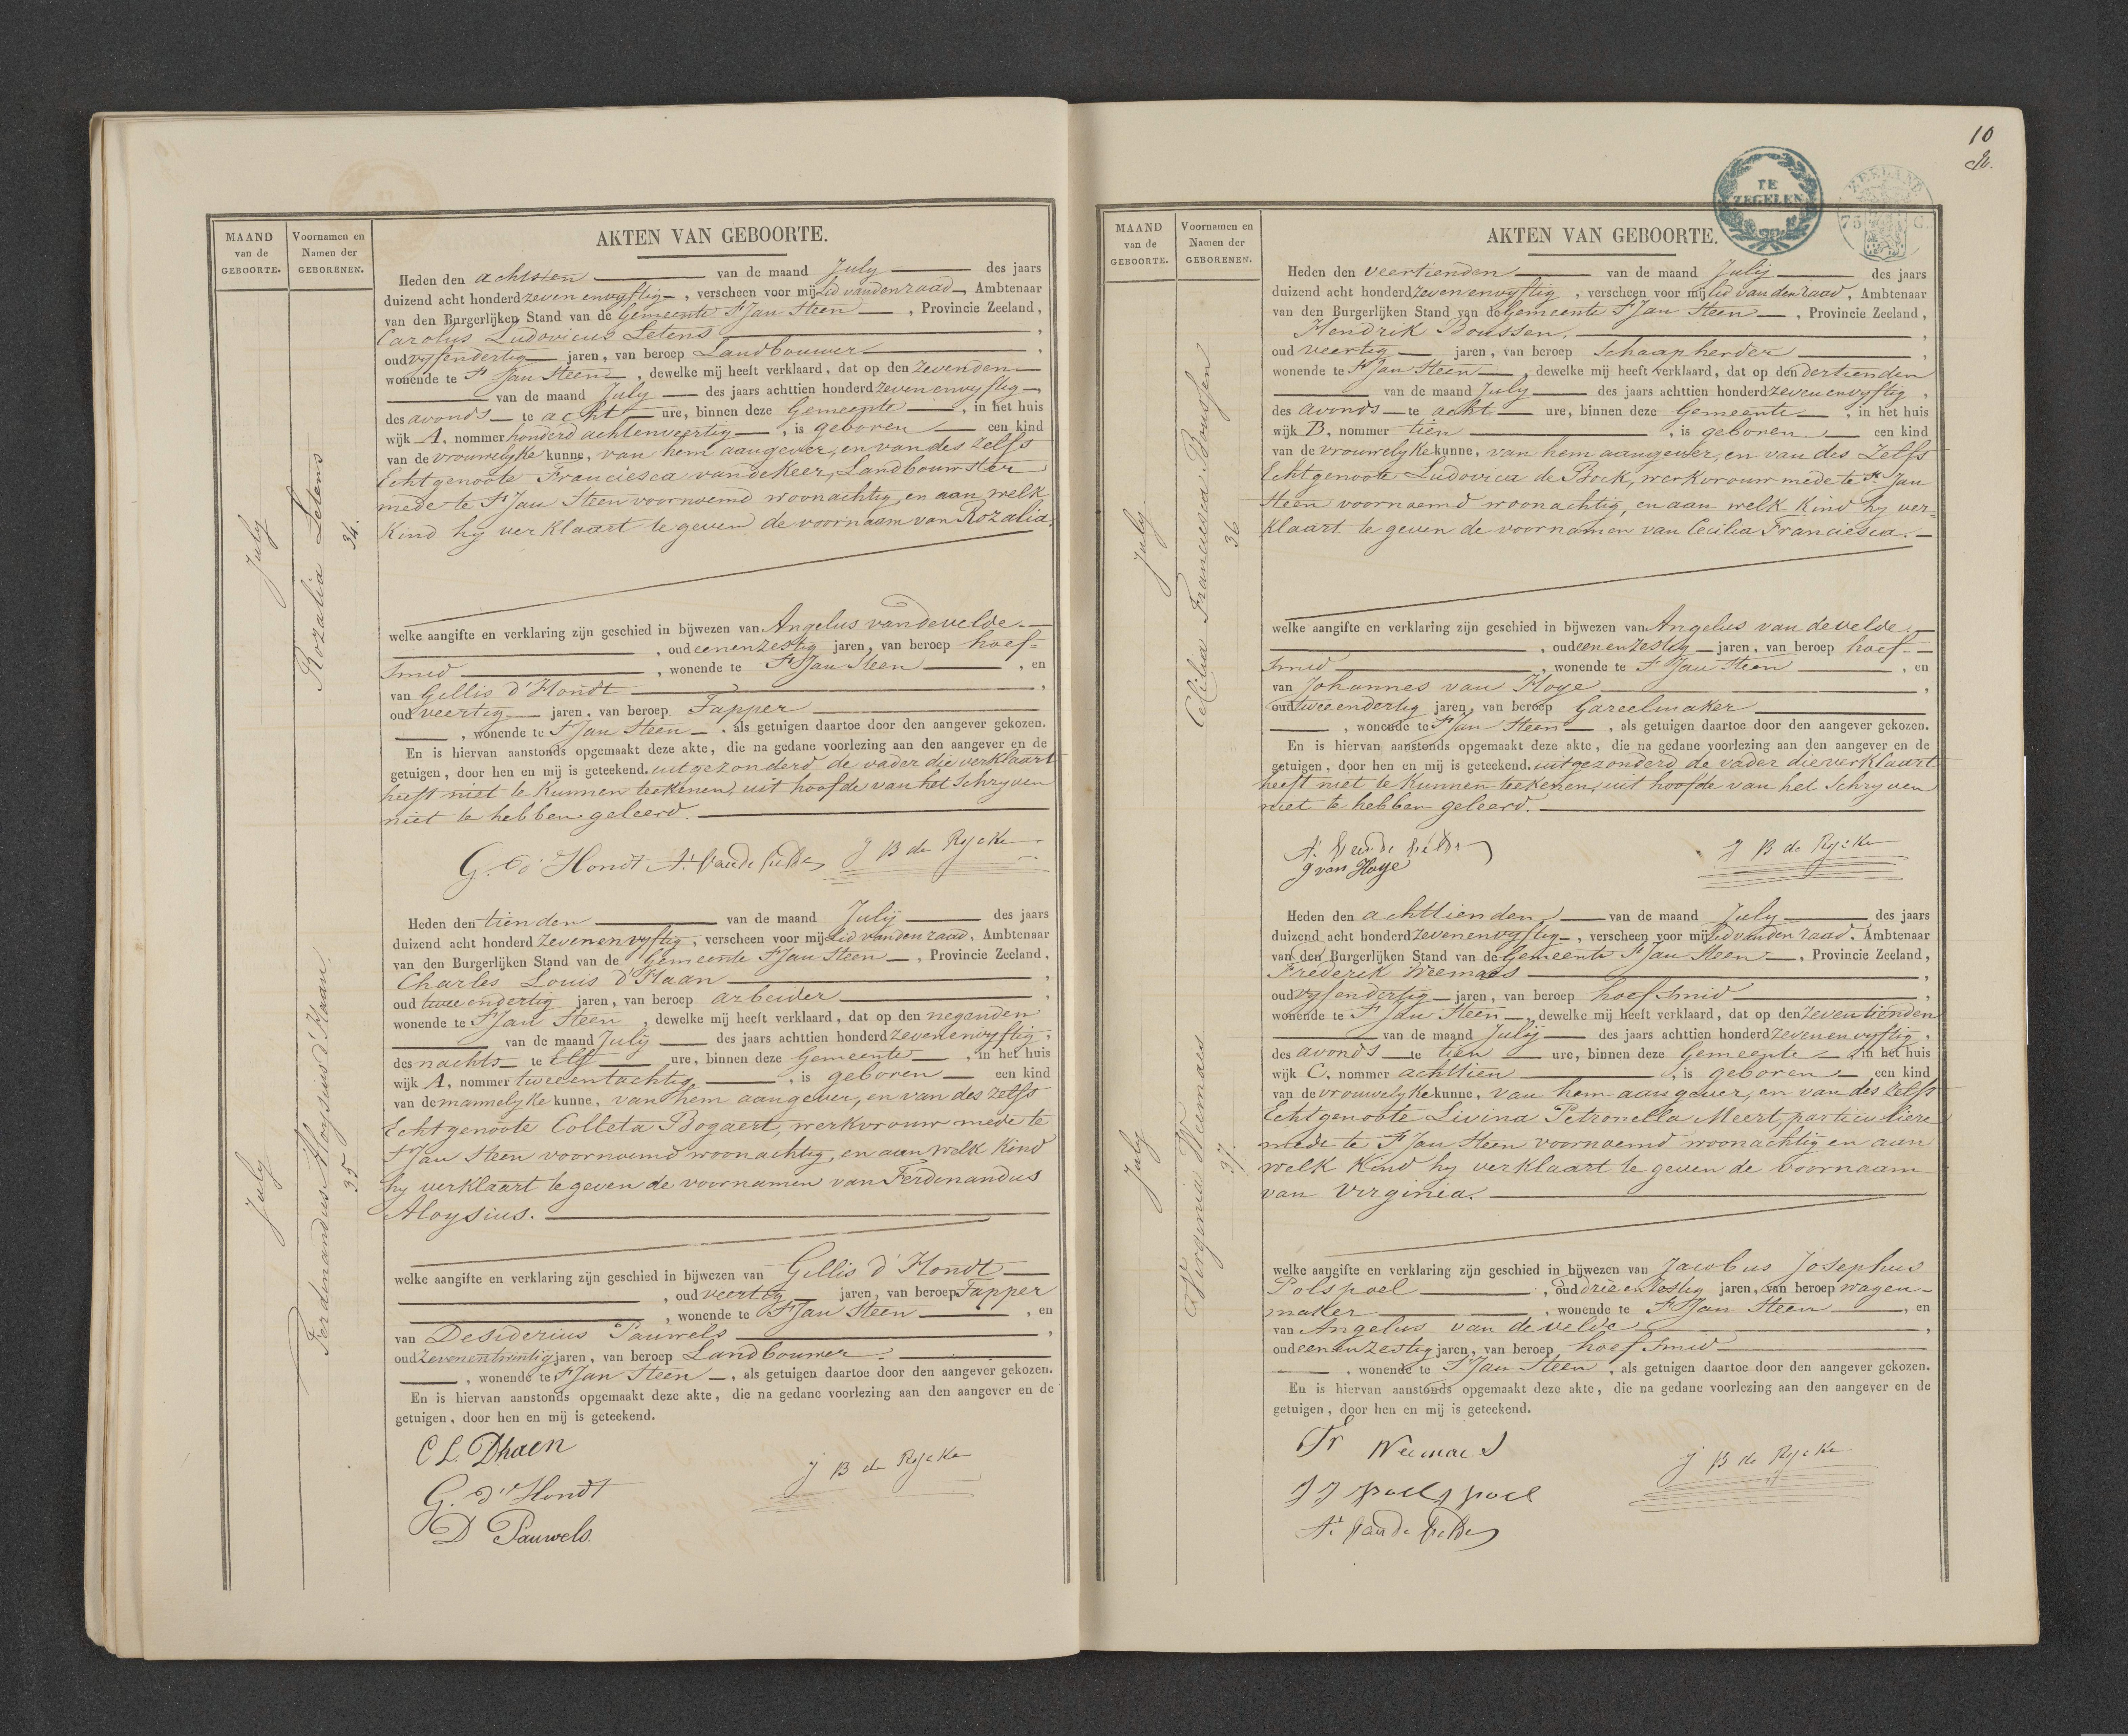 MAAND
van de
GEBOORTE.
Voornamen en
Namen der
GEBORENEN.
AKTEN VAN GEBOORTE.
July
Rozalia Letens
34.
Heden den achtsten van de maand July des jaars
duizend acht honderd zeven envyftig, verscheen voor mij Lid vanden raad, Ambtenaar
van den Burgerlijken Stand van de Gemeente St Jan Steen, Provincie Zeeland,
Carolus Ludovicus Letens,
oud vyfendertig jaren, van beroep Landbouwer,
wonende te St Jan Steen, dewelke mij heeft verklaard, dat op den Zevenden
van de maand July des jaars achttien honderd zeven envyftig
des avonds te acht ure, binnen deze Gemeente, in het huis
wijk A, nommer honderd achtenveertig, is geboren een kind
van de vrouwelyke kunne, van hem aangever, en van des zelfs
Echtgenoote Franciesca vandeKeer, Landbouwster
mede te St Jan Steen voornoemd woonachtig, en aan welk
Kind hy verklaart te geven de voornaam van Rozalia.
welke aangifte en verklaring zijn geschied in bijwezen van Angelus vandevelde.
, oud eenenzestig jaren, van beroep hoef=
smid, wonende te St Jan Steen, en
van Gillis d'Hondt,
oud veertig jaren, van beroep Tapper
, wonende te St Jan Steen, als getuigen daartoe door den aangever gekozen.
En is hiervan aanstonds opgemaakt deze akte, die na gedane voorlezing aan den aangever en de
getuigen, door hen en mij is geteekend. uitgezonderd de vader die verklaart
heeft niet te Kunnen teekenen, uit hoofde van het Schryven
niet te hebben geleerd.
G. d'Hondt A. Vande Velde J B de Rycke
July
Ferdenandus Aloysius d'Haan
35
Heden den tienden van de maand Julij des jaars
duizend acht honderd Zevenenvyftig, verscheen voor mij Lid vanden raad, Ambtenaar
van den Burgerlijken Stand van de Gemeente St Jan Steen, Provincie Zeeland,
Charles Louis d'Haan,
oud twee endertig jaren, van beroep arbeider,
wonende te St Jan Steen, dewelke mij heeft verklaard, dat op den negenden
van de maand July des jaars achttien honderd Zevenenvyftig,
des nachts te Elf ure, binnen deze Gemeente, in het huis
wijk A, nommer tweeentachtig, is geboren een kind
van de mannelyke kunne, van hem aangever, en van des zelfs
Echtgenoote Colleta Bogaert, werkvrouw mede te
St Jan Steen voornoemd woonachtig, en aan welk Kind
hy verklaart te geven de voornamen van Ferdinandus
Aloysius.
welke aangifte en verklaring zijn geschied in bijwezen van Gillis d'Hondt
, oud veertig jaren, van beroep Tapper
, wonende te St Jan Steen, en
van Desiderius Pauwels,
oud Zevenentwintig jaren, van beroep Landbouwer.
, wonende te St Jan Steen, als getuigen daartoe door den aangever gekozen.
En is hiervan aanstonds opgemaakt deze akte, die na gedane voorlezing aan den aangever en de
getuigen, door hen en mij is geteekend.
C L. Dhaen
G. d'Hondt J B de Rycke
D Pauwels.
10
TE
ZEGELEN
ZEELAND
75 C.
MAAND
van de
GEBOORTE.
Voornamen en
Namen der
GEBORENEN.
AKTEN VAN GEBOORTE.
July.
Cecilia Franciesca Boussen
36
Heden den veertienden van de maand Julij des jaars
duizend acht honderd Zevenenvyftig, verscheen voor mij Lid van den raad, Ambtenaar
van den Burgerlijken Stand van de Gemeente St Jan Steen, Provincie Zeeland,
Hendrik Boussen,
oud veertig jaren, van beroep Schaapherder,
wonende te St Jan Steen, dewelke mij heeft verklaard, dat op den dertienden
van de maand July des jaars achttien honderd zevenenvyftig,
des avonds te acht ure, binnen deze Gemeente, in het huis
wijk B, nommer tien, is geboren een kind
van de vrouwelyke kunne, van hem aangever, en van des Zelfs
Echtgenoote Ludovica de Bock, werkvrouw mede te St Jan
Steen voornoemd woonachtig, en aan welk Kind hy ver=
klaart te geven de voornamen van Cecilia Franciesca.
welke aangifte en verklaring zijn geschied in bijwezen van Angelus van develde.
, oud eenenzestig jaren, van beroep hoef-
smid, wonende te St Jan Steen, en
van Johannes van Hoye,
oud tweeendertig jaren, van beroep Gareelmaker
, wonende te St Jan Steen, als getuigen daartoe door den aangever gekozen.
En is hiervan aanstonds opgemaakt deze akte, die na gedane voorlezing aan den aangever en de
getuigen, door hen en mij is geteekend. uitgezonderd de vader die verklaart
heeft niet te Kunnen teekenen, uit hoofde van het Schryven
niet te hebben geleerd.
A. Vande Velde J B de Rycke
J van Hoye
July
Virginia Weemaes
37.
Heden den achttienden van de maand July des jaars
duizend acht honderd Zevenenvyftig, verscheen voor mij Lid vanden raad, Ambtenaar
van den Burgerlijken Stand van de Gemeente St Jan Steen, Provincie Zeeland,
Frederik Weemaes,
oud vyfendertig jaren, van beroep hoefsmid,
wonende te St Jan Steen, dewelke mij heeft verklaard, dat op den Zeventienden
van de maand Julij des jaars achttien honderd Zevenenvyftig,
des avonds te tien ure, binnen deze Gemeente in het huis
wijk C, nommer achttien, is geboren een kind
van de vrouwelyke kunne, van hem aangever, en van des Zelfs
Echtgenoote Livina Petronella Meert, particuliere
mede te St Jan Steen voornoemd woonachtig en aan
welk Kind hy verklaart te geven de voornaam
van Virginia.
welke aangifte en verklaring zijn geschied in bijwezen van Jacobus Josephus
Polspoel, oud drieenzestig jaren, van beroep wagen-
maker, wonende te St Jan Steen, en
van Angelus van develde,
oud eenenzestig jaren, van beroep hoefsmid
, wonende te St Jan Steen, als getuigen daartoe door den aangever gekozen.
En is hiervan aanstonds opgemaakt deze akte, die na gedane voorlezing aan den aangever en de
getuigen, door hen en mij is geteekend.
Fr Weemaes
J J poelspoel J B de Rycke
A. Vande Velde